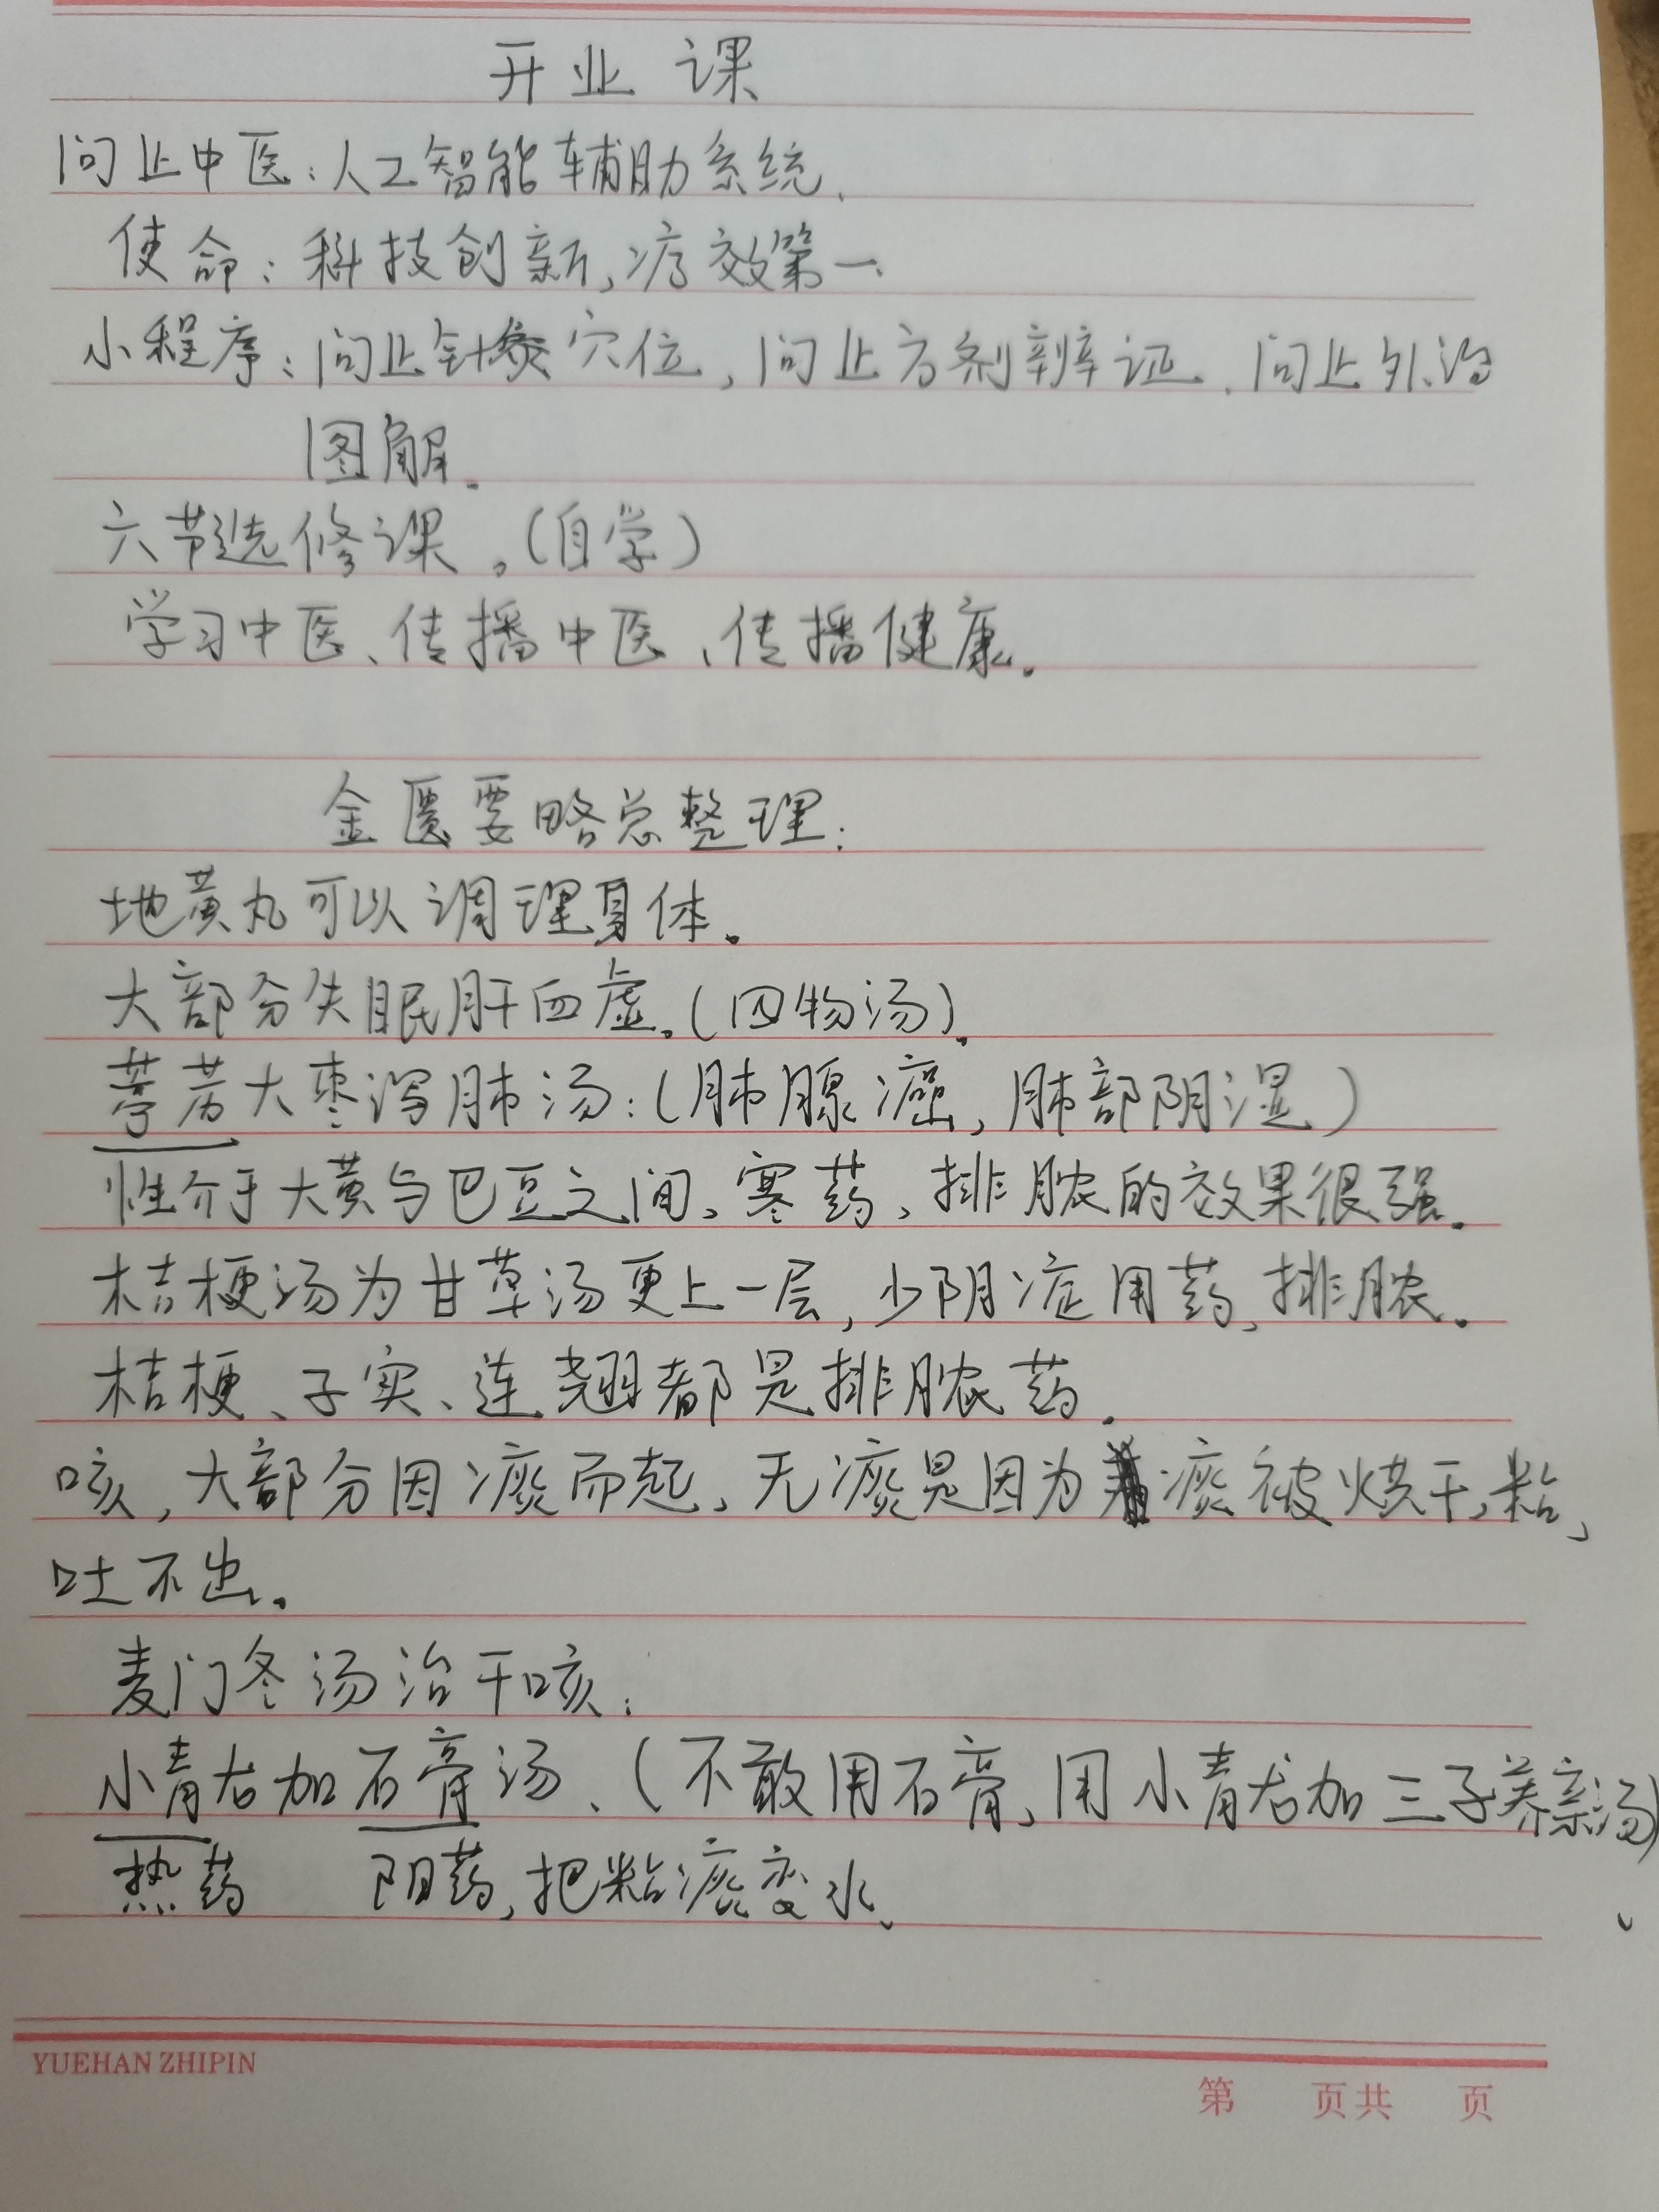 开业课
问止中医：人工智能辅助系统.
使命：科技创新,疗效第一.
小程序：问止针灸穴位，问止方剂辨证、问止外治
图解.
六节选修课。(自学)
学习中医、传播中医、传播健康.
金匮要略总整理:
地黄丸可以调理身体。
大部分失眠肝血虚。(四物汤).
葶苈大枣泻肺汤:(肺腺癌,肺部阴湿)
性介于大黄与巴豆之间、寒药,排脓的效果很强.
桔梗汤为甘草汤更上一层,少阴症用药,排脓.
桔梗、子实、连翘都是排脓药.
咳,大部分因痰而起、无痰是因为痰被烘干,粘,
吐不出。
麦门冬汤治干咳:
小青龙加石膏汤、(不敢用石膏,用小青龙加三子养亲汤)
热药 阳药,把粘痰变水、
YUEHAN ZHIPIN
第 页共 页